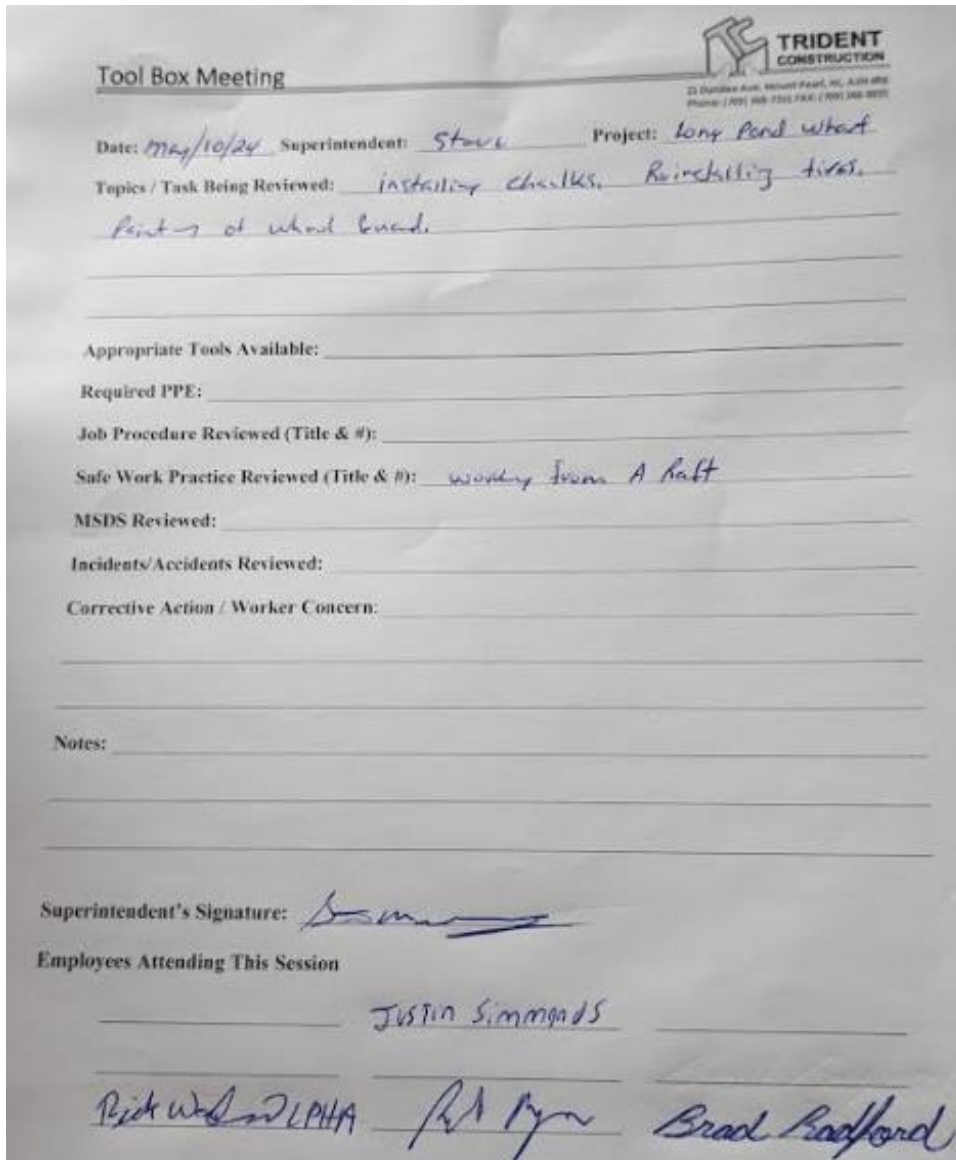 TRIDENT
CONSTRUCTION
Tool Box Meeting
Date: May/10/24 Superintendent: Steve Project: Long Pond wharf
Topics / Task Being Reviewed: installing chaulks. Reinstalling tires.
of wheel Guard.
Appropriate Tools Available:
Required PPE:
Job Procedure Reviewed (Title & #):
Safe Work Practice Reviewed (Title & #): working from A Raft
MSDS Reviewed:
Incidents/Accidents Reviewed:
Corrective Action / Worker Concern:
Notes:
Superintendent's Signature:
Employees Attending This Session
Justin Simmonds
Rick Brad Radford